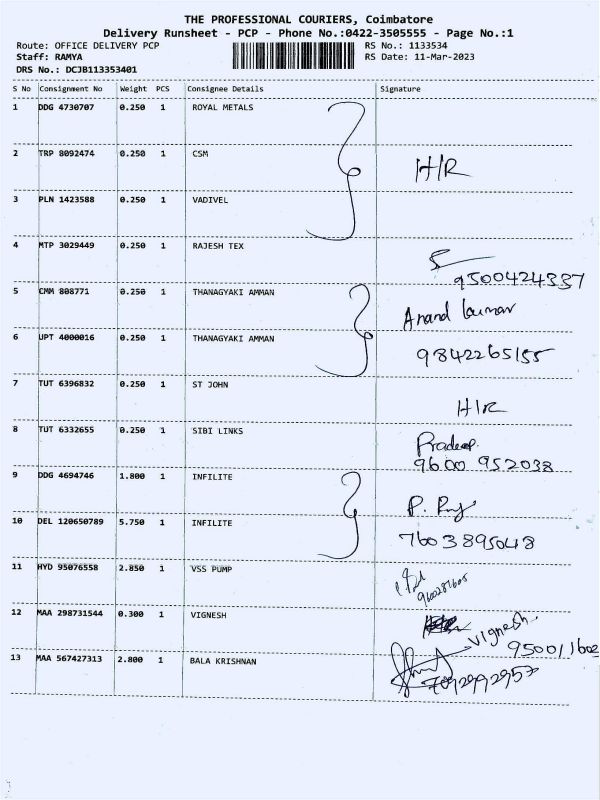 THE PROFESSIONAL COURIERS, Coimbatore
Delivery Runsheet - PCP - Phone No.:0422-3505555 - Page No.:1
Route: OFFICE DELIVERY PCP RS No.: 1133534
Staff: RAMYA RS Date: 11-Mar-2023
DRS No.: DCJB113353401
S No Consignment No Weight PCS Consignee Details Signature
1 DDG 4730707 0.250 1 ROYAL METALS
2 TRP 8092474 0.250 1 CSM H/R
3 PLN 1423588 0.250 1 VADIVEL
4 MTP 3029449 0.250 1 RAJESH TEX
9500424337
5 CMM 808771 0.250 1 THANAGYAKI AMMAN Anand kumar
6 UPT 4000016 0.250 1 THANAGYAKI AMMAN 9842265155
7 TUT 6396832 0.250 1 ST JOHN H/R
8 TUT 6332655 0.250 1 SIBI LINKS Pradeep.
9600 952038
9 DDG 4694746 1.800 1 INFILITE
10 DEL 120650789 5.750 1 INFILITE 7603895048
11 HYD 95076558 2.850 1 VSS PUMP
12 MAA 298731544 0.300 1 VIGNESH Vignesh.
13 MAA 567427313 2.800 1 BALA KRISHNAN
7092992957